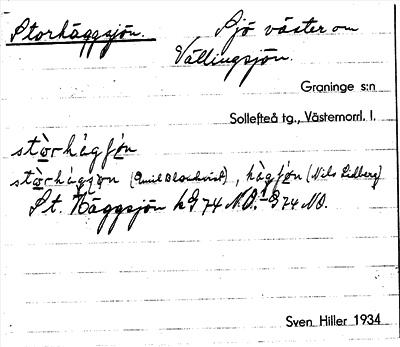 Storhäggsjön. Sjö väster om
Vällingsjön.
Graninge s:n
Sollefteå tg., Västernorrl. l.
stòrhägʃön
stòrhägʃön (Emil Blomkvist), hägʃön (Nils Lidberg)
St. Häggsjön kG 74 N.O. G 74 NO.
Sven Hiller 1934